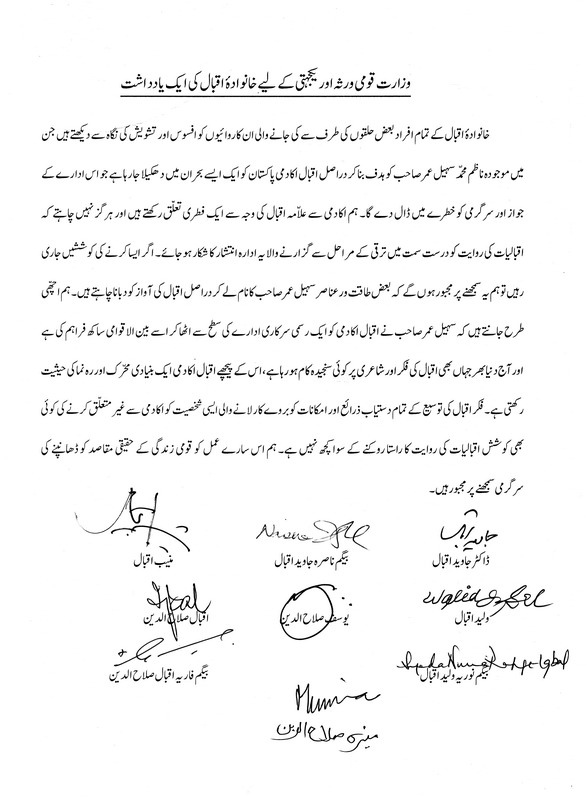 وزارت قومی ورثہ اور یکجہتی کے لیے خانوادۂ اقبال کی ایک یادداشت
خانوادۂ اقبال کے تمام افراد بعض حلقوں کی طرف سے کی جانے والی ان کارروائیوں کو افسوس اور تشویش کی نگاہ سے دیکھتے ہیں جن
میں موجودہ ناظم محمّد سہیل عمر صاحب کو ہدف بنا کر دراصل اقبال اکادمی پاکستان کو ایک ایسے بحران میں دھکیلا جا رہا ہے جو اس ادارے کے
جواز اور سرگرمی کو خطرے میں ڈال دے گا۔ ہم اکادمی سے علاّمہ اقبال کی وجہ سے ایک فطری تعلّق رکھتے ہیں اور ہرگز نہیں چاہتے کہ
اقبالیات کی روایت کو درست سمت میں ترقی کے مراحل سے گزارنے والا یہ ادارہ انتشار کا شکار ہو جائے۔ اگر ایسا کرنے کی کوششیں جاری
رہیں تو ہم یہ سمجھنے پر مجبور ہوں گے کہ بعض طاقت ور عناصر سہیل عمر صاحب کا نام لے کر دراصل اقبال کی آواز کو دبانا چاہتے ہیں۔ ہم اچھّی
طرح جانتے ہیں کہ سہیل عمر صاحب نے اقبال اکادمی کو ایک رسمی سرکاری ادارے کی سطح سے اٹھا کر اسے بین الاقوامی ساکھ فراہم کی ہے
اور آج دنیا بھر جہاں بھی اقبال کی فکر اور شاعری پر کوئی سنجیدہ کام ہو رہا ہے، اس کے پیچھے اقبال اکادمی ایک بنیادی محرّک اور رہ نما کی حیثیت
رکھتی ہے۔ فکرِ اقبال کی توسیع کے تمام دستیاب ذرائع اور امکانات کو بروے کار لانے والی ایسی شخصیت کو اکادمی سے غیر متعلّق کرنے کی کوئی
بھی کوشش اقبالیات کی روایت کا راستا روکنے کے سوا کچھ نہیں ہے۔ ہم اس سارے عمل کو قومی زندگی کے حقیقی مقاصد کو ڈھانپنے کی
سرگرمی سمجھنے پر مجبور ہیں۔
ڈاکٹر جاوید اقبال
بیگم ناصرہ جاوید اقبال
منیب اقبال
Waleed Iqbal
Iqbal
ولید اقبال
یوسف صلاح الدین
اقبال صلاح الدین
بیگم نوریہ ولید اقبال
بیگم فاریہ اقبال صلاح الدین
Munira
منیرہ صلاح الدین